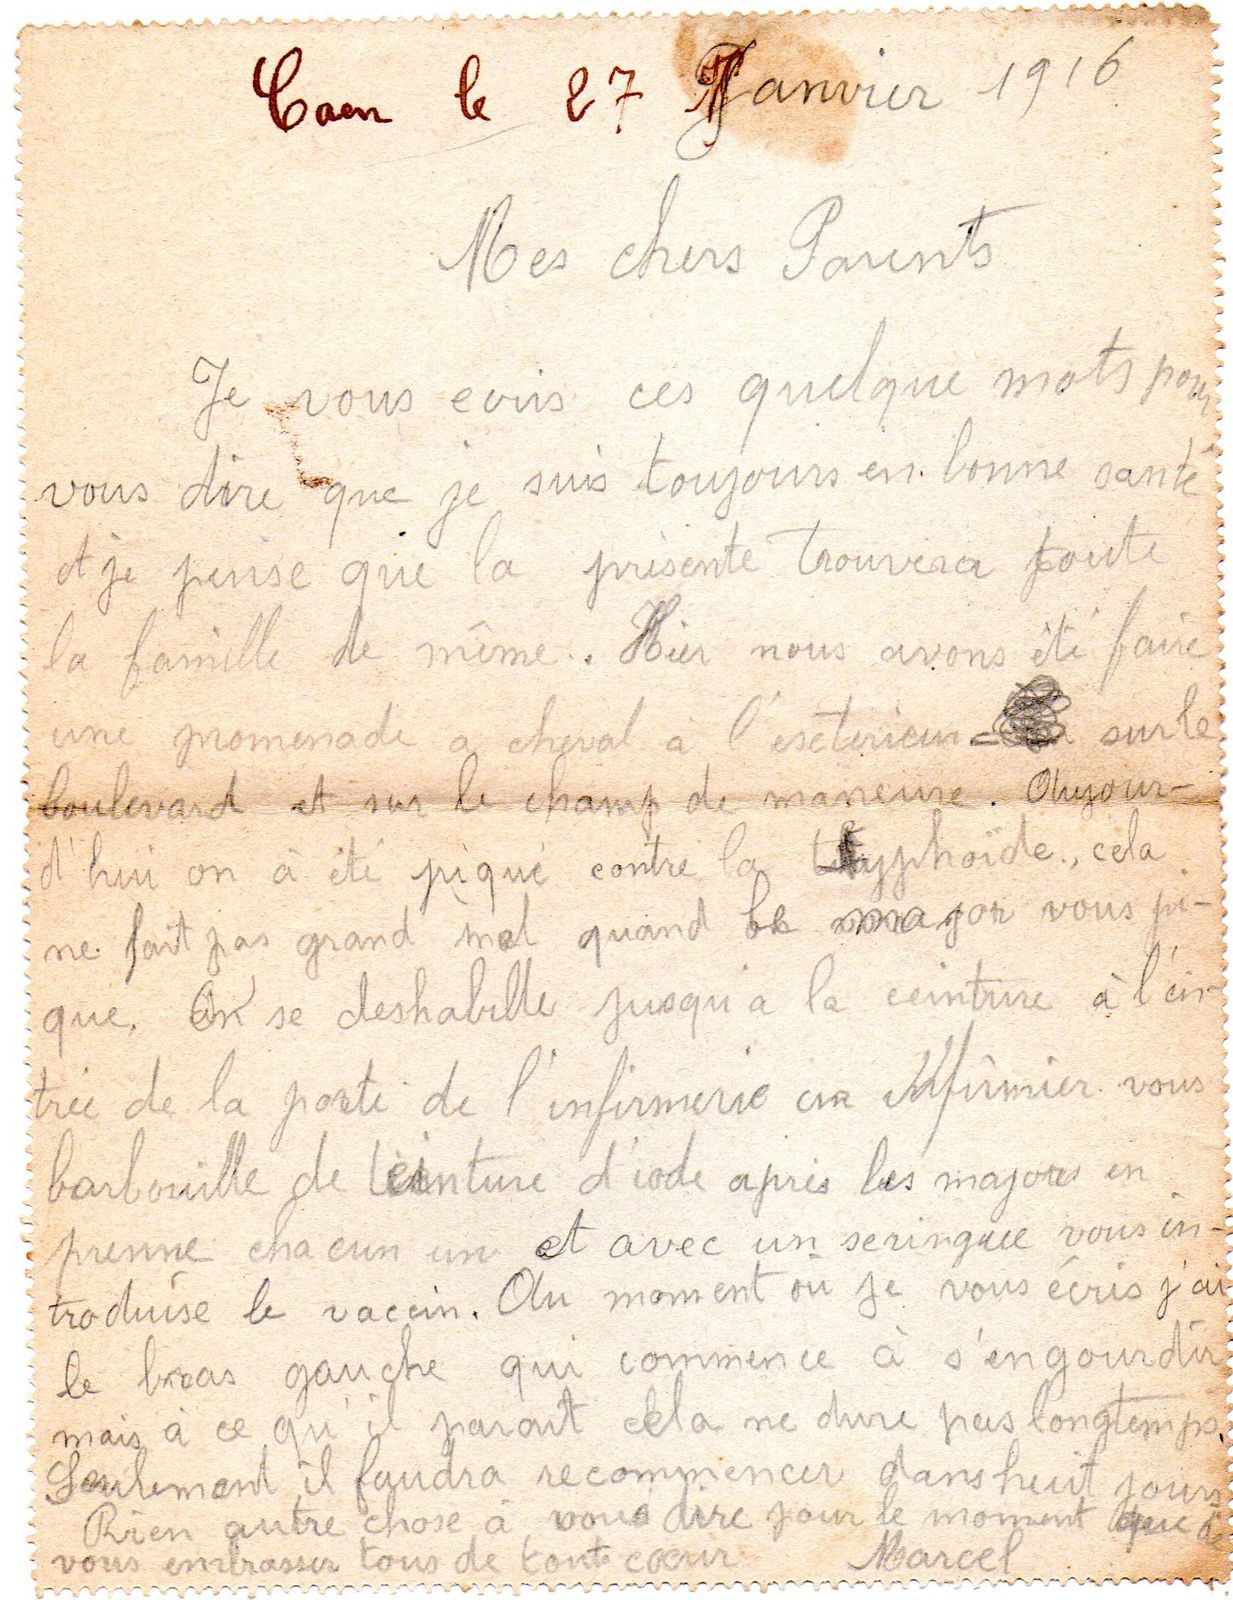 Caen le 27 Janvier 1916
Mes chers Parents
Je vous ecris ces quelque mots pour
vous dire que je suis toujours en bonne santé
et je pense que la présente trouvera toute
la famille de même. Hier nous avons été faire
une promenade a cheval à l'escterieur sur le
boulevard et sur le champ de maneuvre. Aujour-
d'hui on à été piqué contre la typhoïde, cela
ne fait pas grand mal quand le major vous pi-
que. On se deshabille jusqu'a la ceinture à l'en-
trée de la porte de l'infirmerie un infirmier vous
barbouille de teinture d'iode après les majors en
prenne chacun un et avec un seringue vous in-
troduise le vaccin. Au moment où je vous écris j'ai
le bras gauche qui commence à s'engourdir
mais à ce qu'il parait cela ne dure pas longtemps.
Seulement il faudra recommencer dans huit jours
Rien autre chose à vous dire pour le moment que de
vous embrasser tous de tout cœur Marcel